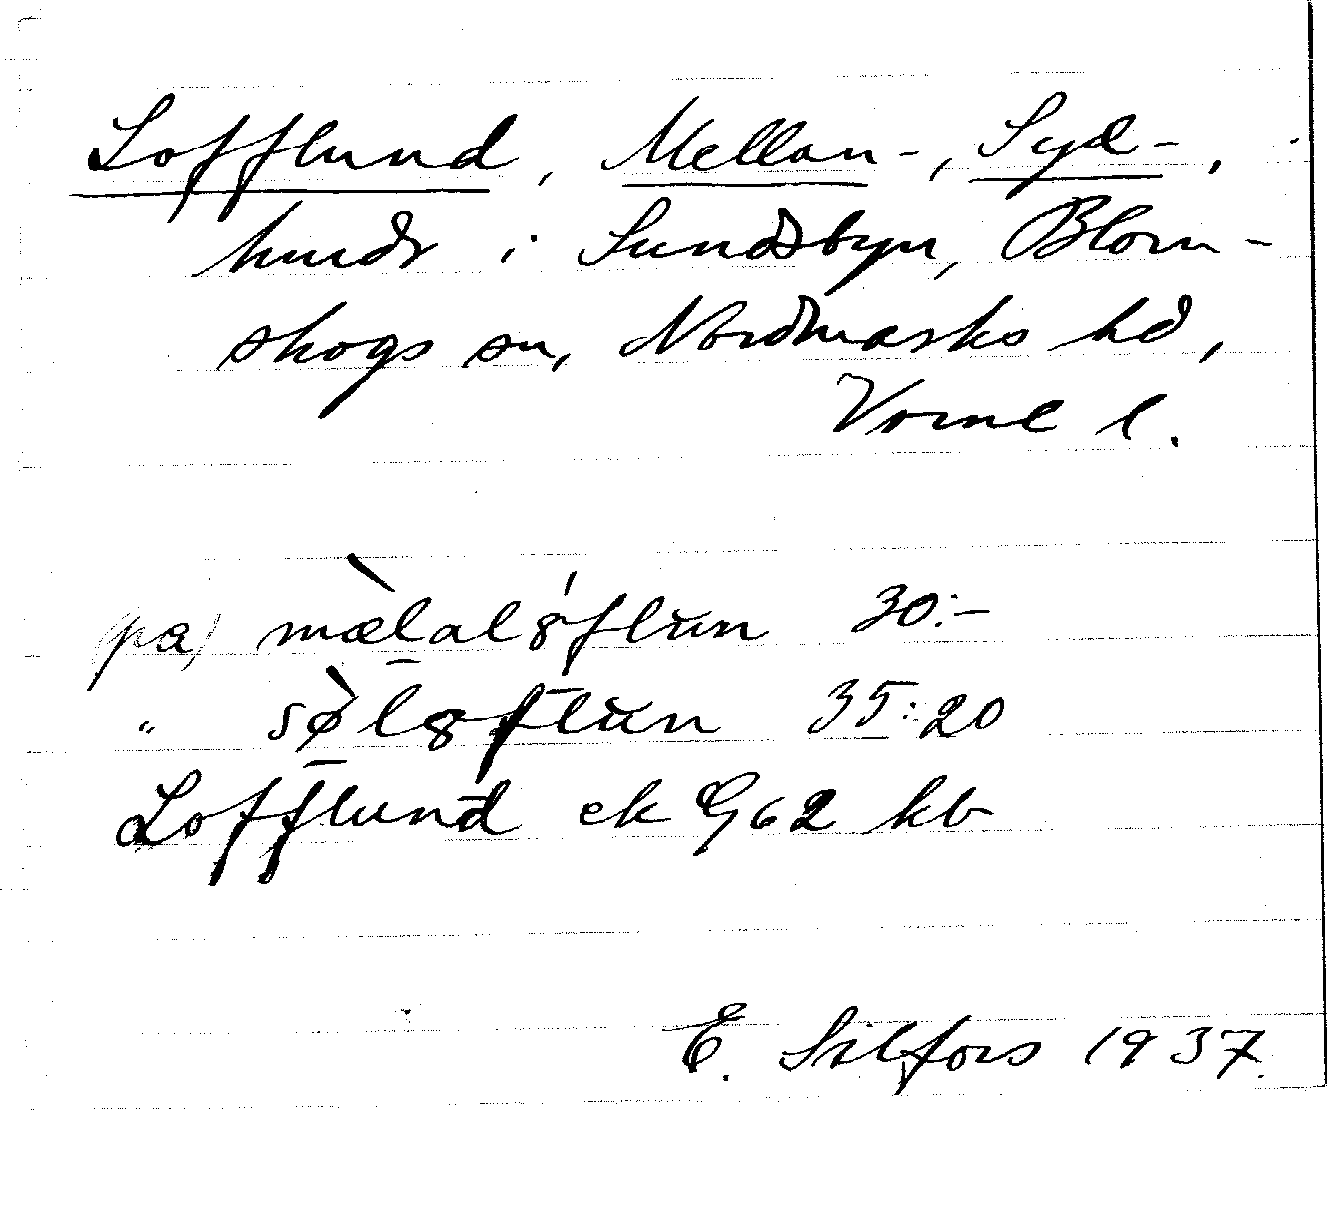 Lofflund, Mellan-, Syd-,
hmdr i Sundsbyn, Blom-
skogs sn, Nordmarks hd,
Värml l.
(pa) mælalȣflun 30:-
" sølȣflun 35:20
Lofflund ek G62 kb
E. Silfors 1937.